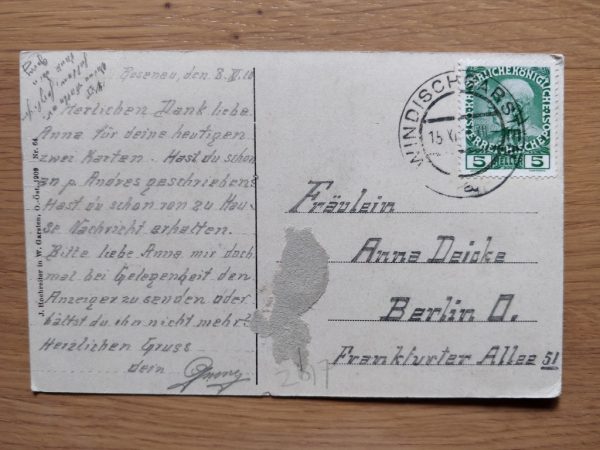 Rosenau, den 8. 
Herlichen Dank liebe
Anna für deine heutigen
zwei Karten. Hast du schon
an p. Andres geschrieben?
Hast du schon von zu Hau-
se Nachricht erhalten.
Bitte liebe Anna mir doch
mal bei Gelegenheit den
Anzeiger zu senden oder
hältst du ihn nicht mehr?
Herzlichen Gruss
dein
J. Hochreiter in W. Garsten, O.-Öst. 1909 Nr. 64
WINDISCHGARSTEN
15 XI
KAISERLICHE KÖNIGLICHE ÖSTERREICHISCHE POST
5 HELLER 5
Fräulein
Anna Deicke
Berlin O.
Frankfurter Allee 51
2617